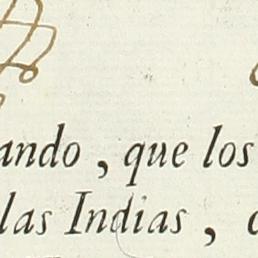 ando, que los
las Indias,